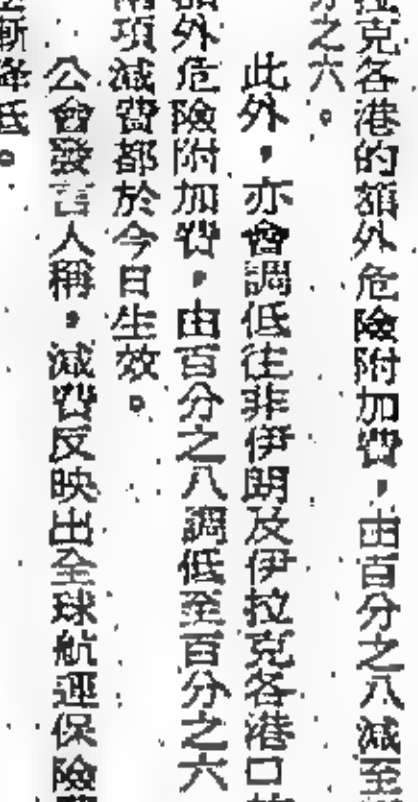 拉克各港的額外危險附加費，由百分之八減至
分之六。
此外，亦會調低往非伊朗及伊拉克各港口
額外危險附加費，由百分之八調低至百分之六
兩項減費都於今日生效。
公會發言人稱，減費反映出全球航運保險
漸降低。